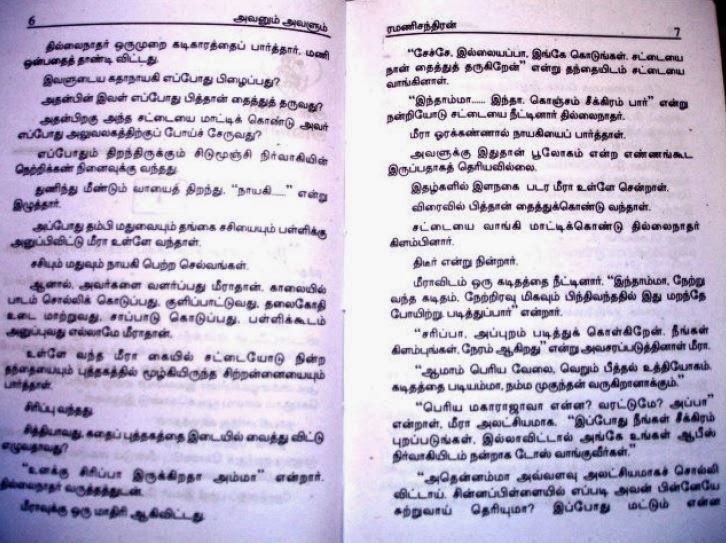 6 அவனும் அவளும்
தில்லைநாதர் ஒருமுறை கடிகாரத்தைப் பார்த்தார். மணி
ஒன்பதைத் தாண்டி விட்டது.
இவளுடைய கதாநாயகி எப்போது பிழைப்பது?
அதன்பின் இவள் எப்போது பித்தான் தைத்துத் தருவது?
அதன்பிறகு அந்த சட்டையை மாட்டிக் கொண்டு அவர்
எப்போது அலுவலகத்திற்குப் போய்ச் சேருவது?
எப்போதும் திறந்திருக்கும் சிடுமூஞ்சி நிர்வாகியின்
நெற்றிக்கண் நினைவுக்கு வந்தது.
துணிந்து மீண்டும் வாயைத் திறந்து, "நாயகி....." என்று
இழுத்தார்.
அப்போது தம்பி மதுவையும் தங்கை சசியையும் பள்ளிக்கு
அனுப்பிவிட்டு மீரா உள்ளே வந்தாள்.
சசியும் மதுவும் நாயகி பெற்ற செல்வங்கள்.
ஆனால், அவர்களை வளர்ப்பது மீராதான். காலையில்
பாடம் சொல்லிக் கொடுப்பது, குளிப்பாட்டுவது, தலைகோதி
உடை மாற்றுவது, சாப்பாடு கொடுப்பது, பள்ளிக்கூடம்
அனுப்புவது எல்லாமே மீராதான்.
உள்ளே வந்த மீரா கையில் சட்டையோடு நின்ற
தந்தையையும் புத்தகத்தில் மூழ்கியிருந்த சிற்றன்னையையும்
பார்த்தாள்.
சிரிப்பு வந்தது.
சித்தியாவது, கதைப் புத்தகத்தை இடையில் வைத்து விட்டு
எழுவதாவது?
"உனக்கு சிரிப்பா இருக்கிறதா அம்மா" என்றார்.
தில்லைநாதர் வருத்தத்துடன்.
மீராவுக்கு ஒரு மாதிரி ஆகிவிட்டது.
ரமணிசந்திரன் 7
"சேச்சே, இல்லையப்பா, இங்கே கொடுங்கள். சட்டையை
நான் தைத்துத் தருகிறேன்" என்று தந்தையிடம் சட்டையை
வாங்கினாள்.
"இந்தாம்மா...... இந்தா, கொஞ்சம் சீக்கிரம் பார்" என்று
நன்றியோடு சட்டையை நீட்டினார் தில்லைநாதர்.
மீரா ஓரக்கண்ணால் நாயகியைப் பார்த்தாள்.
அவளுக்கு இதுதான் பூலோகம் என்ற எண்ணங்கூட
இருப்பதாகத் தெரியவில்லை.
இதழ்களில் இளநகை படர மீரா உள்ளே சென்றாள்.
விரைவில் பித்தான் தைத்துக்கொண்டு வந்தாள்.
சட்டையை வாங்கி மாட்டிக்கொண்டு தில்லைநாதர்
கிளம்பினார்.
திடீர் என்று நின்றார்.
மீராவிடம் ஒரு கடிதத்தை நீட்டினார். "இந்தாம்மா, நேற்று
வந்த கடிதம், நேற்றிரவு மிகவும் பிந்திவந்ததில் இது மறந்தே
போயிற்று. படித்துப்பார்" என்றார்.
"சரிப்பா, அப்புறம் படித்துக் கொள்கிறேன். நீங்கள்
கிளம்புங்கள், நேரம் ஆகிறது" என்று அவசரப்படுத்தினாள் மீரா.
"ஆமாம் பெரிய வேலை, வெறும் பீத்தல் உத்தியோகம்.
கடிதத்தை படியம்மா, நம்ம முகுந்தன் வருகிறானாக்கும்."
"பெரிய மகாராஜாவா என்ன? வரட்டுமே? அப்பா"
என்றாள், மீரா அலட்சியமாக. "இப்போது நீங்கள் சீக்கிரம்
புறப்படுங்கள், இல்லாவிட்டால் அங்கே உங்கள் ஆபீஸ்
நிர்வாகியிடம் நன்றாக டோஸ் வாங்குவீர்கள்."
"அதென்னம்மா அவ்வளவு அலட்சியமாகச் சொல்லி
விட்டாய். சின்னப்பிள்ளையில் எப்படி அவன் பின்னேயே
சுற்றுவாய் தெரியுமா? இப்போது மட்டும் என்ன